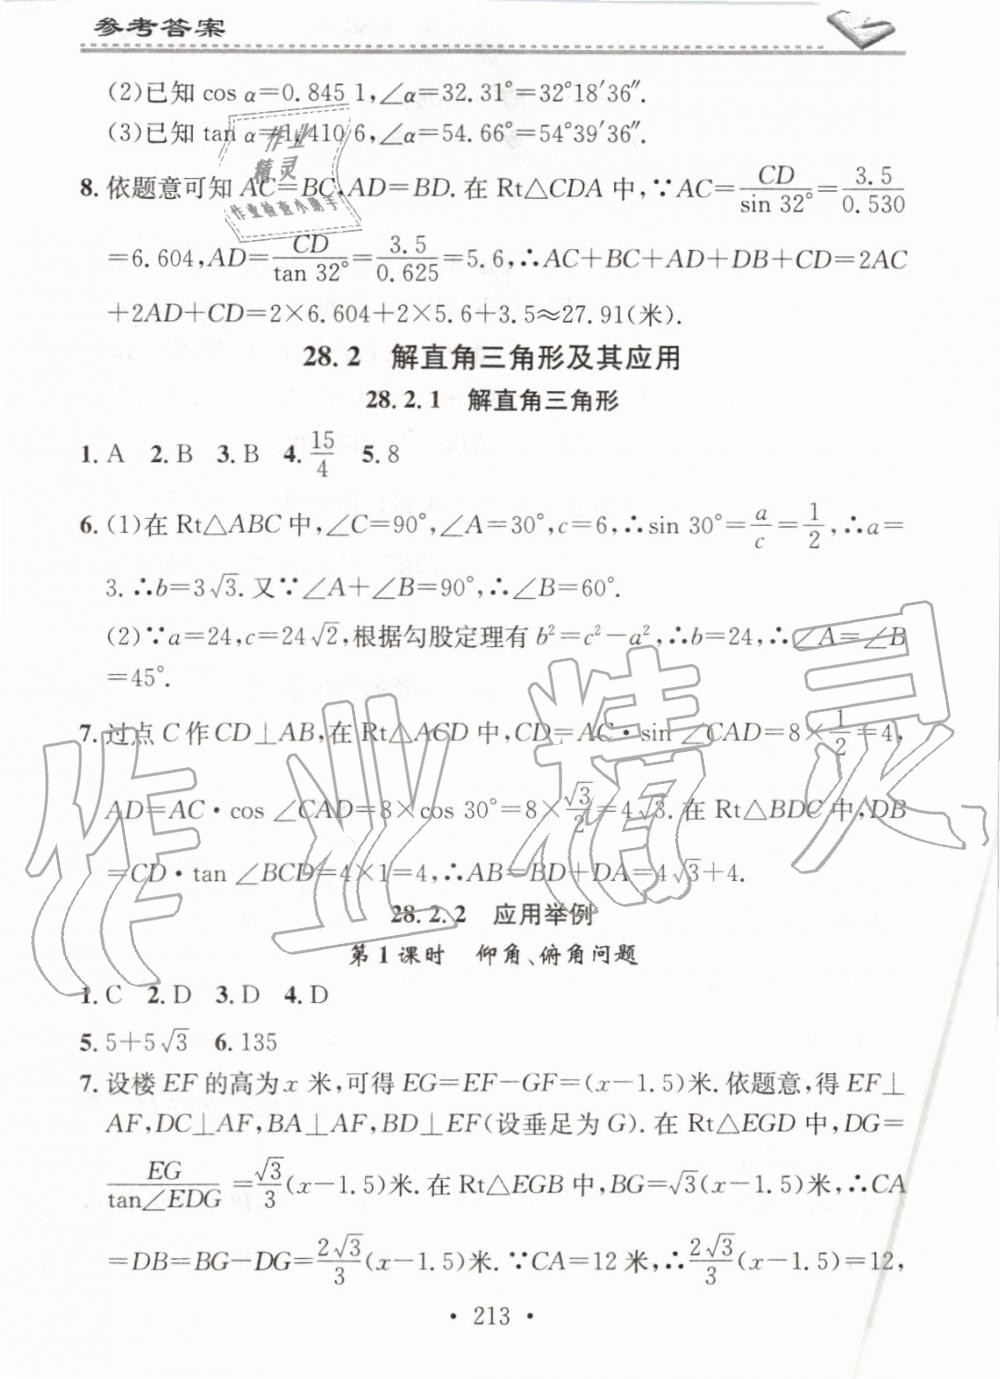 参考答案
(2)已知 cos α=0.845 1,∠α=32.31°=32°18′36″.
(3)已知 tan α=1.410 6,∠α=54.66°=54°39′36″.
8. 依题意可知 AC=BC,AD=BD. 在 Rt△CDA 中,∵AC=CD/sin 32°=3.5/0.530
=6.604,AD=CD/tan 32°=3.5/0.625=5.6,∴AC+BC+AD+DB+CD=2AC
+2AD+CD=2×6.604+2×5.6+3.5≈27.91(米).
28.2 解直角三角形及其应用
28.2.1 解直角三角形
1. A 2. B 3. B 4. 15/4 5. 8
6. (1)在 Rt△ABC 中,∠C=90°,∠A=30°,c=6,∴sin 30°=a/c=1/2,∴a=
3. ∴b=3√3. 又∵∠A+∠B=90°,∴∠B=60°.
(2)∵a=24,c=24√2,根据勾股定理有 b²=c²-a²,∴b=24,∴∠A=∠B
=45°.
7. 过点 C 作 CD⊥AB,在 Rt△ACD 中,CD=AC·sin ∠CAD=8×1/2=4,
AD=AC·cos ∠CAD=8×cos 30°=8×√3/2=4√3. 在 Rt△BDC 中,DB
=CD·tan ∠BCD=4×1=4,∴AB=BD+DA=4√3+4.
28.2.2 应用举例
第1课时 仰角、俯角问题
1. C 2. D 3. D 4. D
5. 5+5√3 6. 135
7. 设楼 EF 的高为 x 米,可得 EG=EF-GF=(x-1.5)米. 依题意,得 EF⊥
AF,DC⊥AF,BA⊥AF,BD⊥EF(设垂足为 G). 在 Rt△EGD 中,DG=
EG/tan∠EDG=√3/3(x-1.5)米. 在 Rt△EGB 中,BG=√3(x-1.5)米,∴CA
=DB=BG-DG=2√3/3(x-1.5)米. ∵CA=12 米,∴2√3/3(x-1.5)=12,
· 213 ·
作业
精灵
作业检查小助手
作业精灵